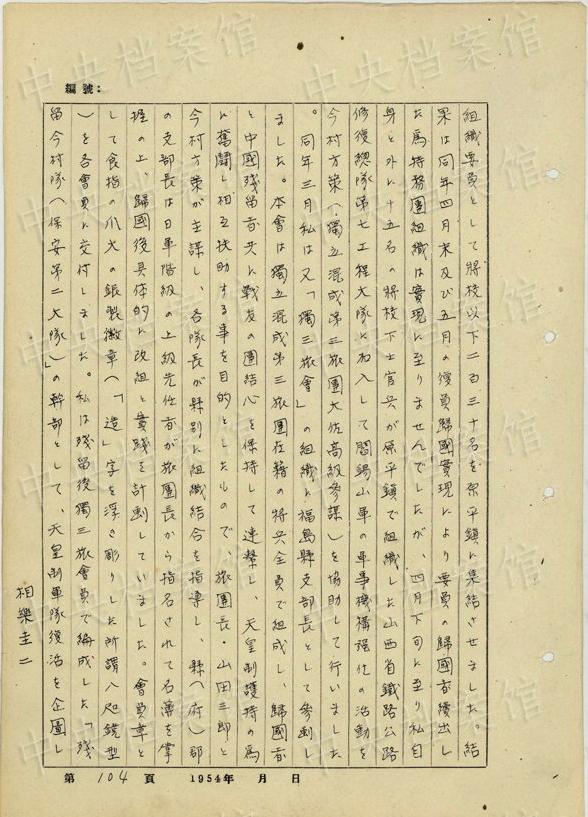 編號:
組織要員として將校以下二百三十名を原平鎮に集結させました。結
果は同年四月末及び五月の復員歸國實現により要員の歸國者續出し
た爲特務團組織は實現に至りませんでしたが、四月下旬に至り私自
身と外に十五名の將校下士官兵が原平鎮で組織した山西省鐵路公路
修復總隊第七工程大隊に加入して閻錫山軍の軍事機構强化の活動を
今村方策(獨立混成第三旅團大佐高級參謀)を協助して行いました
。同年三月私は又「獨三旅會」の組織に福島縣支部長として參劃し
ました。本會は獨立混成第三旅團在籍の將兵全員で組成し、歸國者
と中國殘留者共に戰友の團結心を保持して連繫し、天皇制護持の爲
に奮鬪し相互扶助する事を目的としたもので、旅團長・山田三郎と
今村方策が主謀し、各隊長が縣別に組織結合を指導し、縣(府)部
の支部長は日軍階級の上級先任者が旅團長から指名されて名簿を掌
握の上、歸國後具体的に改組と實踐を計劃していました。會員章と
して食指の爪大の銀製徽章(「造」字を浮き彫りした所謂八咫鏡型
)を各會員に交付しました。私は殘留後獨三旅會員で編成した「殘
留今村隊(保安第二大隊)」の幹部として、天皇制軍隊復活を企圖し
相樂圭二
第 104 頁 1954年 月 日
中央档案馆